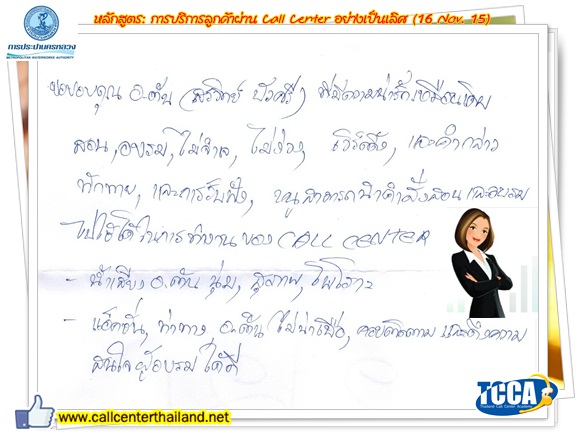 หลักสูตร: การบริการลูกค้าผ่าน Call Center อย่างเป็นเลิศ (16 Nov. 15)
การประปานครหลวง
METROPOLITAN WATERWORKS AUTHORITY
ขอขอบคุณ อ.ต้น ( บัวศรี) ที่มีความน่ารักเหมือนเดิม
สอน, อบรม, ไม่จำเจ, ไม่ง่วง, และคำกล่าว
ทักทาย, และการรับฟัง, หนูสามารถนำคำสั่งสอน และอบรม
ไปใช้ได้ในการทำงาน ของ CALL CENTER
- น้ำเสียง อ.ต้น นุ่ม, สุภาพ, ไพเราะ
- แอ็คชั่น, ท่าทาง อ.ต้น ไม่น่าเบื่อ, คอยติดตาม และดึงความ
สนใจผู้อบรมได้ดี
TCCA
Thailand Call Center Academy
www.callcenterthailand.net